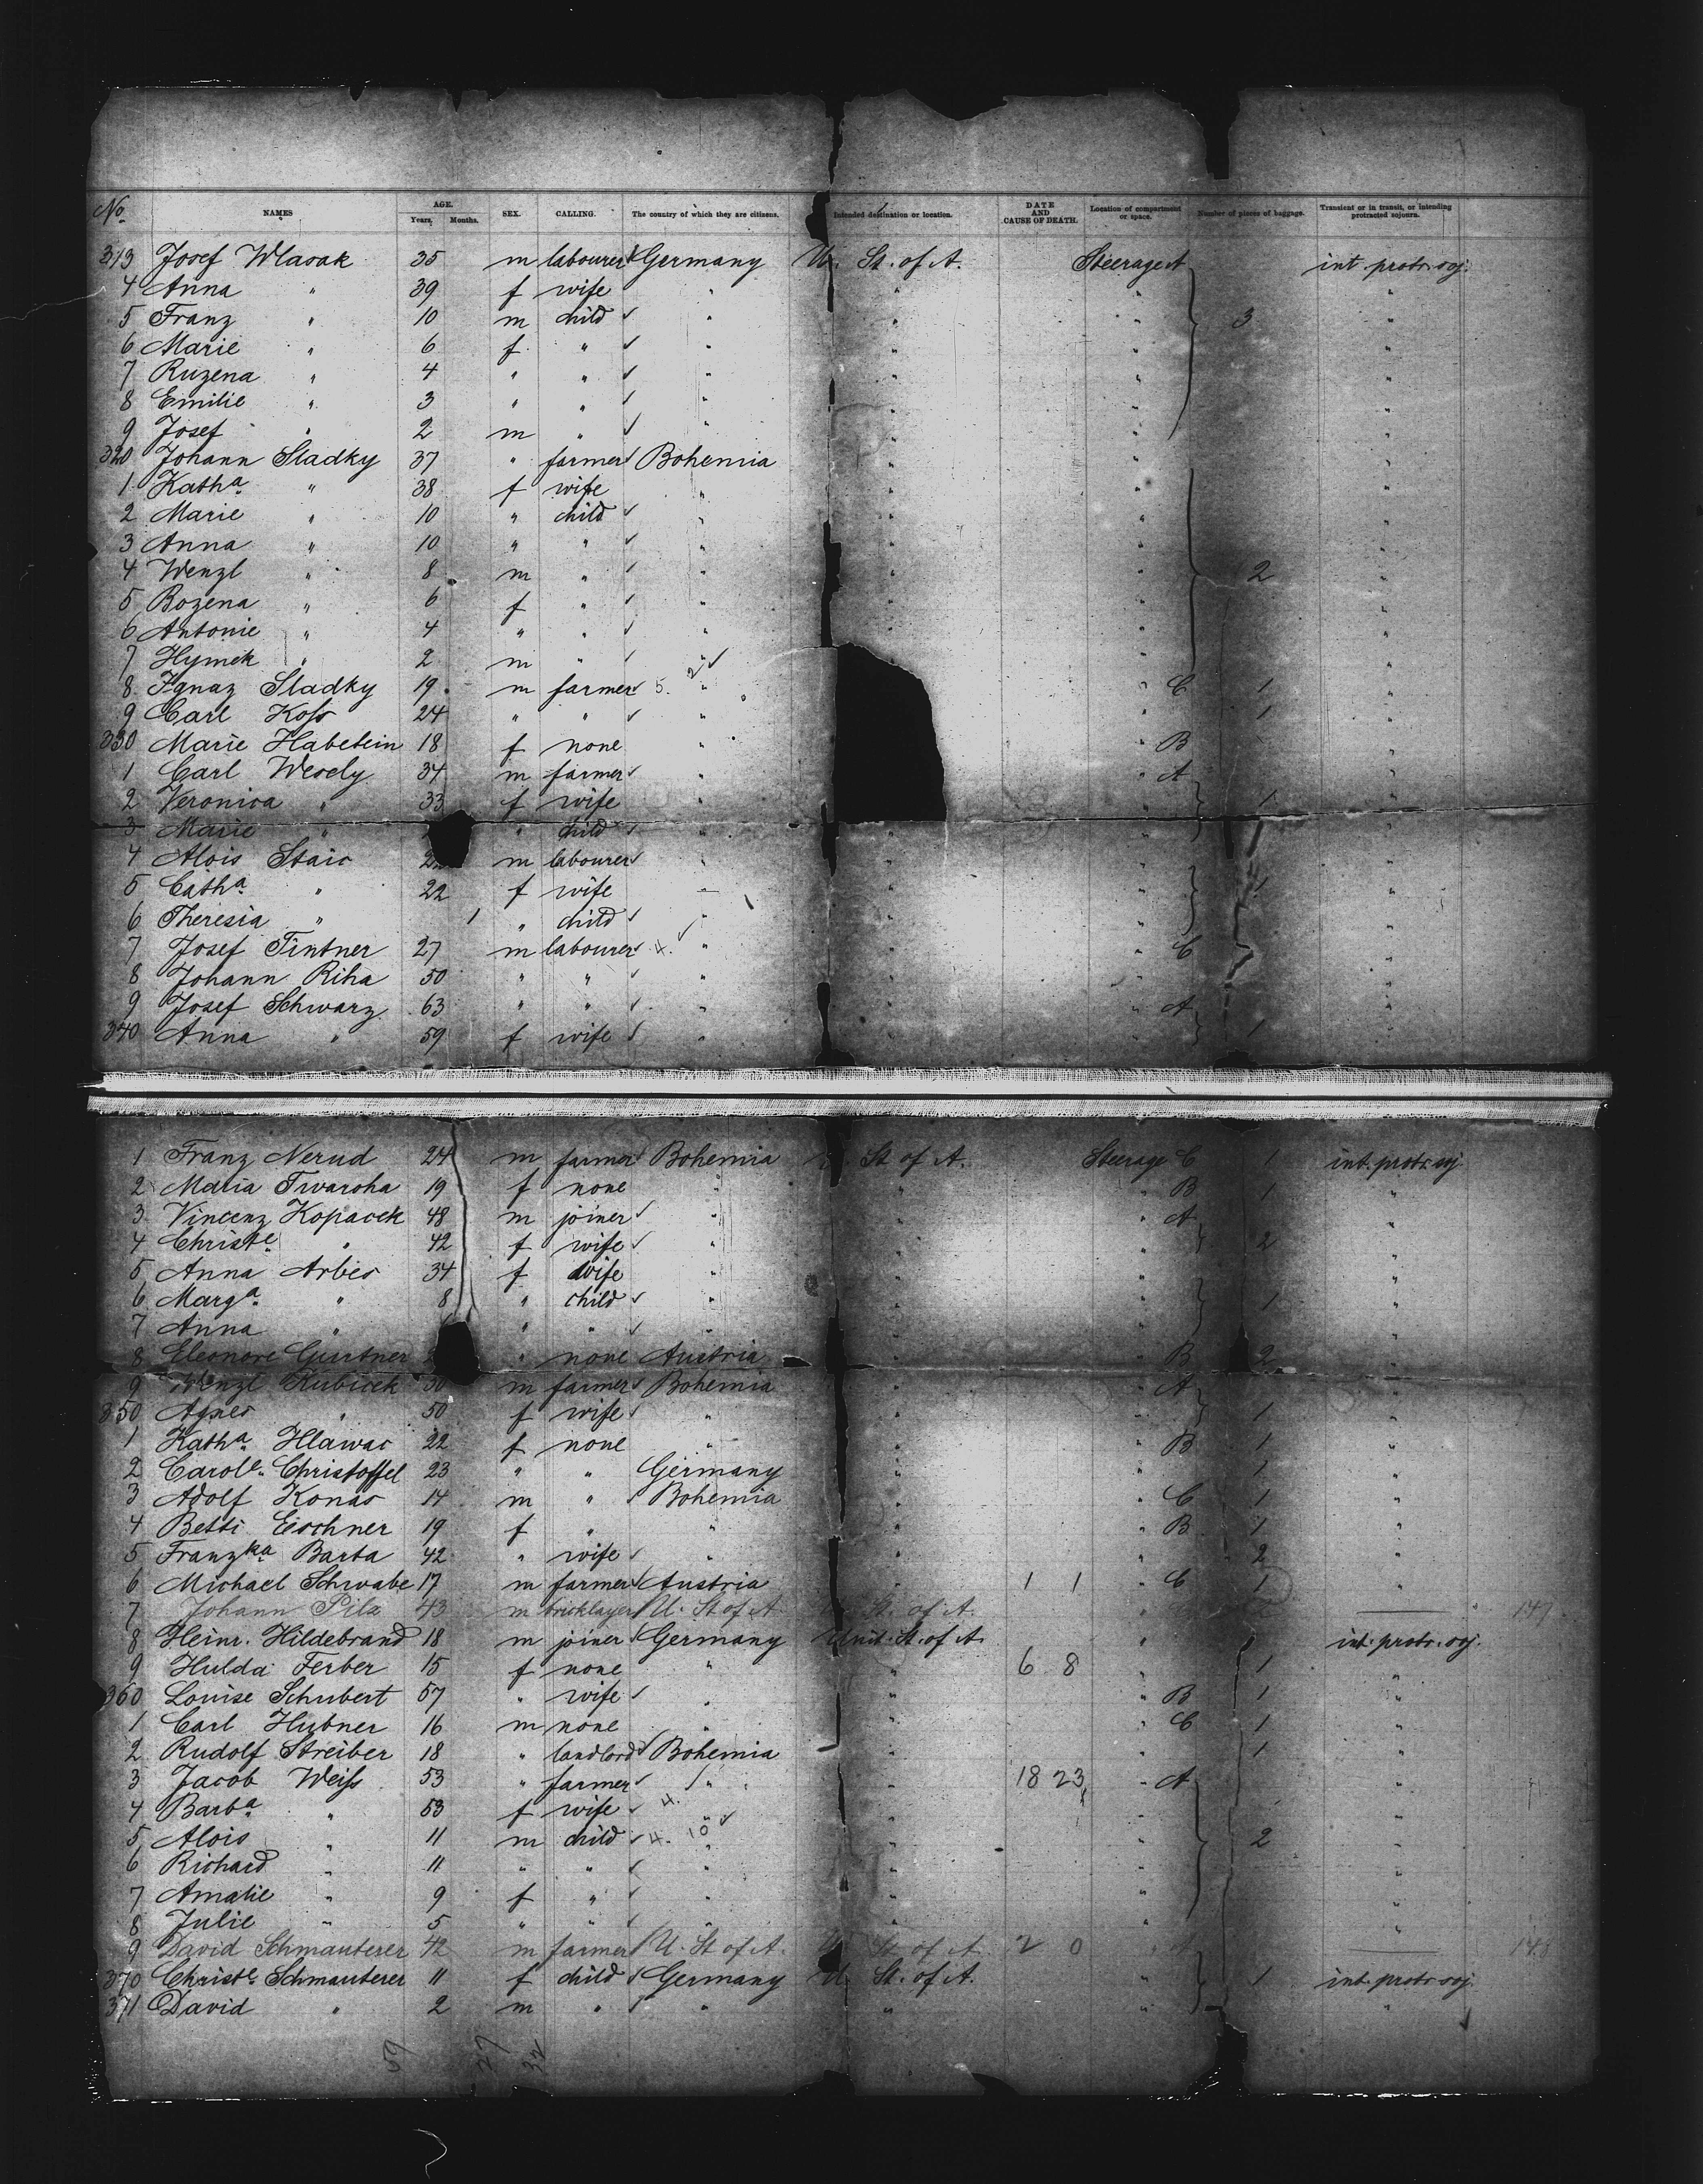 No. NAMES AGE. Years, Months. SEX. CALLING. The country of which they are citizens. Intended destination or location. DATE AND CAUSE OF DEATH. Location of compartment or space. Number of pieces of baggage. Transient or in transit, or intending protracted sojourn.
313 Josef Wlasak 35 m labourer Germany U. St. of A. Steerage A int. protr. soj.
4 Anna " 39 f wife " " " "
5 Franz " 10 m child " " " 3 "
6 Marie " 6 f " " " " "
7 Ruzena " 4 " " " " " "
8 Emilie " 3 " " " " " "
9 Josef " 2 m " " " " "
320 Johann Sladky 37 " farmer Bohemia " " "
1 Katha " 38 f wife " " " "
2 Marie " 10 " child " " " "
3 Anna " 10 " " " " " "
4 Wenzl " 8 m " " " " 2 "
5 Bozena " 6 f " " " " "
6 Antonie " 4 " " " " " "
7 Hymek " 2 m " " " "
8 Ignaz Sladky 19 m farmer 5. 2 " " C 1 "
9 Carl Koss 24 " " " " 1 "
330 Marie Habetein 18 f none " " B "
1 Carl Wesely 34 m farmer " " A "
2 Veronica " 33 f wife " " 1 "
3 Marie " " child " " " "
4 Alois Staic m labourer " " " "
5 Catha " 22 f wife " " " 1 "
6 Theresia " 1 " child " " " "
7 Josef Tintner 27 m labourer 4. " " " C "
8 Johann Riha 50 " " " " " "
9 Josef Schwarz 63 " " " " " A "
340 Anna " 59 f wife " " " 1 "
1 Franz Nerud 24 m farmer Bohemia St of A. Steerage C 1 int. protr. soj.
2 Maria Twaroha 19 f none " " " B 1 "
3 Vincenz Kopacek 48 m joiner " " " A "
4 Christe " 42 f wife " " " 2 "
5 Anna Arbes 34 f wife " " " "
6 Marga " 8 " child " " " 1 "
7 Anna " " " " " " "
8 Eleonore Gurtner " none Austria " " B 2 "
9 Wenzl Kubicek 50 m farmer Bohemia " " A "
350 Agnes " 50 f wife " " " 1 "
1 Katha Hlawac 22 f none " " " B 1 "
2 Carole Christoffel 23 " " Germany " " 1 "
3 Adolf Konas 14 m " Bohemia " " C 1 "
4 Betti Eischner 19 f " " " " B 1 "
5 Franzka Barta 42 " wife " " " 2 "
6 Michael Schwabe 17 m farmer Austria " 1 1 " C 1 "
7 Johann Pila 43 m bricklayer U. St of A St. of A. 147
8 Heinr. Hildebrand 18 m joiner Germany Unit. St. of A. " int. protr. soj.
9 Hulda Ferber 15 f none " " 6 8 " 1 "
360 Louise Schubert 57 " wife " " " B 1 "
1 Carl Hubner 16 m none " " " C 1 "
2 Rudolf Streiber 18 " landlord Bohemia " " 1 "
3 Jacob Weiss 53 " farmer " " 18 23 " A "
4 Barba " 53 f wife 4. " " " "
5 Alois " 11 m child 4. 10 " " " 2 "
6 Richard " 11 " " " " " "
7 Amalie " 9 f " " " " "
8 Julie " 5 " " " " " "
9 David Schmauterer 42 m farmer U. St of A. U. St. of A. 2 0 " A 148
370 Christe Schmauterer 11 f child Germany U. St. of A. " 1 int. protr. soj.
371 David " 2 m " " " " "
59 27 32